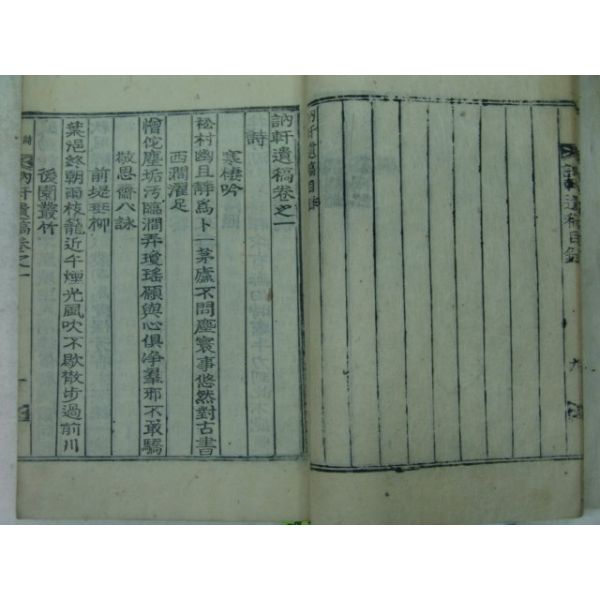 訥軒遺稿目錄
訥軒遺稿卷之一
詩
寒棲吟
松村幽且靜爲卜一茅廬不問塵寰事悠然對古書
西澗濯足
憎佗塵垢汚臨澗弄瓊瑤願與心俱淨羣邪不敢驕
敬思齋八詠
前堤垂柳
葉浥終朝雨枝籠近午煙光風吹不歇散步過前川
後園叢竹
詩
訥軒遺稿卷之一
一